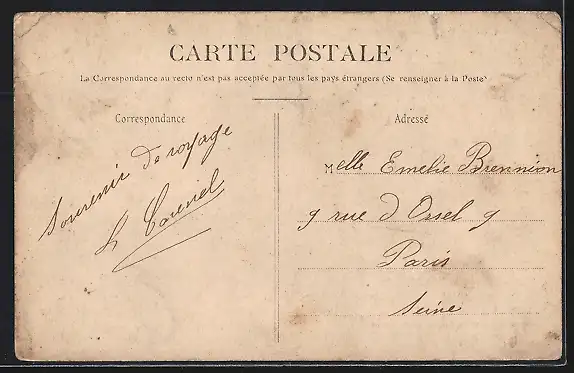 CARTE POSTALE
La Correspondance au recto n'est pas acceptée par tous les pays étrangers (Se renseigner à la Poste)
Correspondance
Souvenir de voyage
Adresse
Melle Emelie Brennion
9 rue d Orsel 9
Paris
Seine